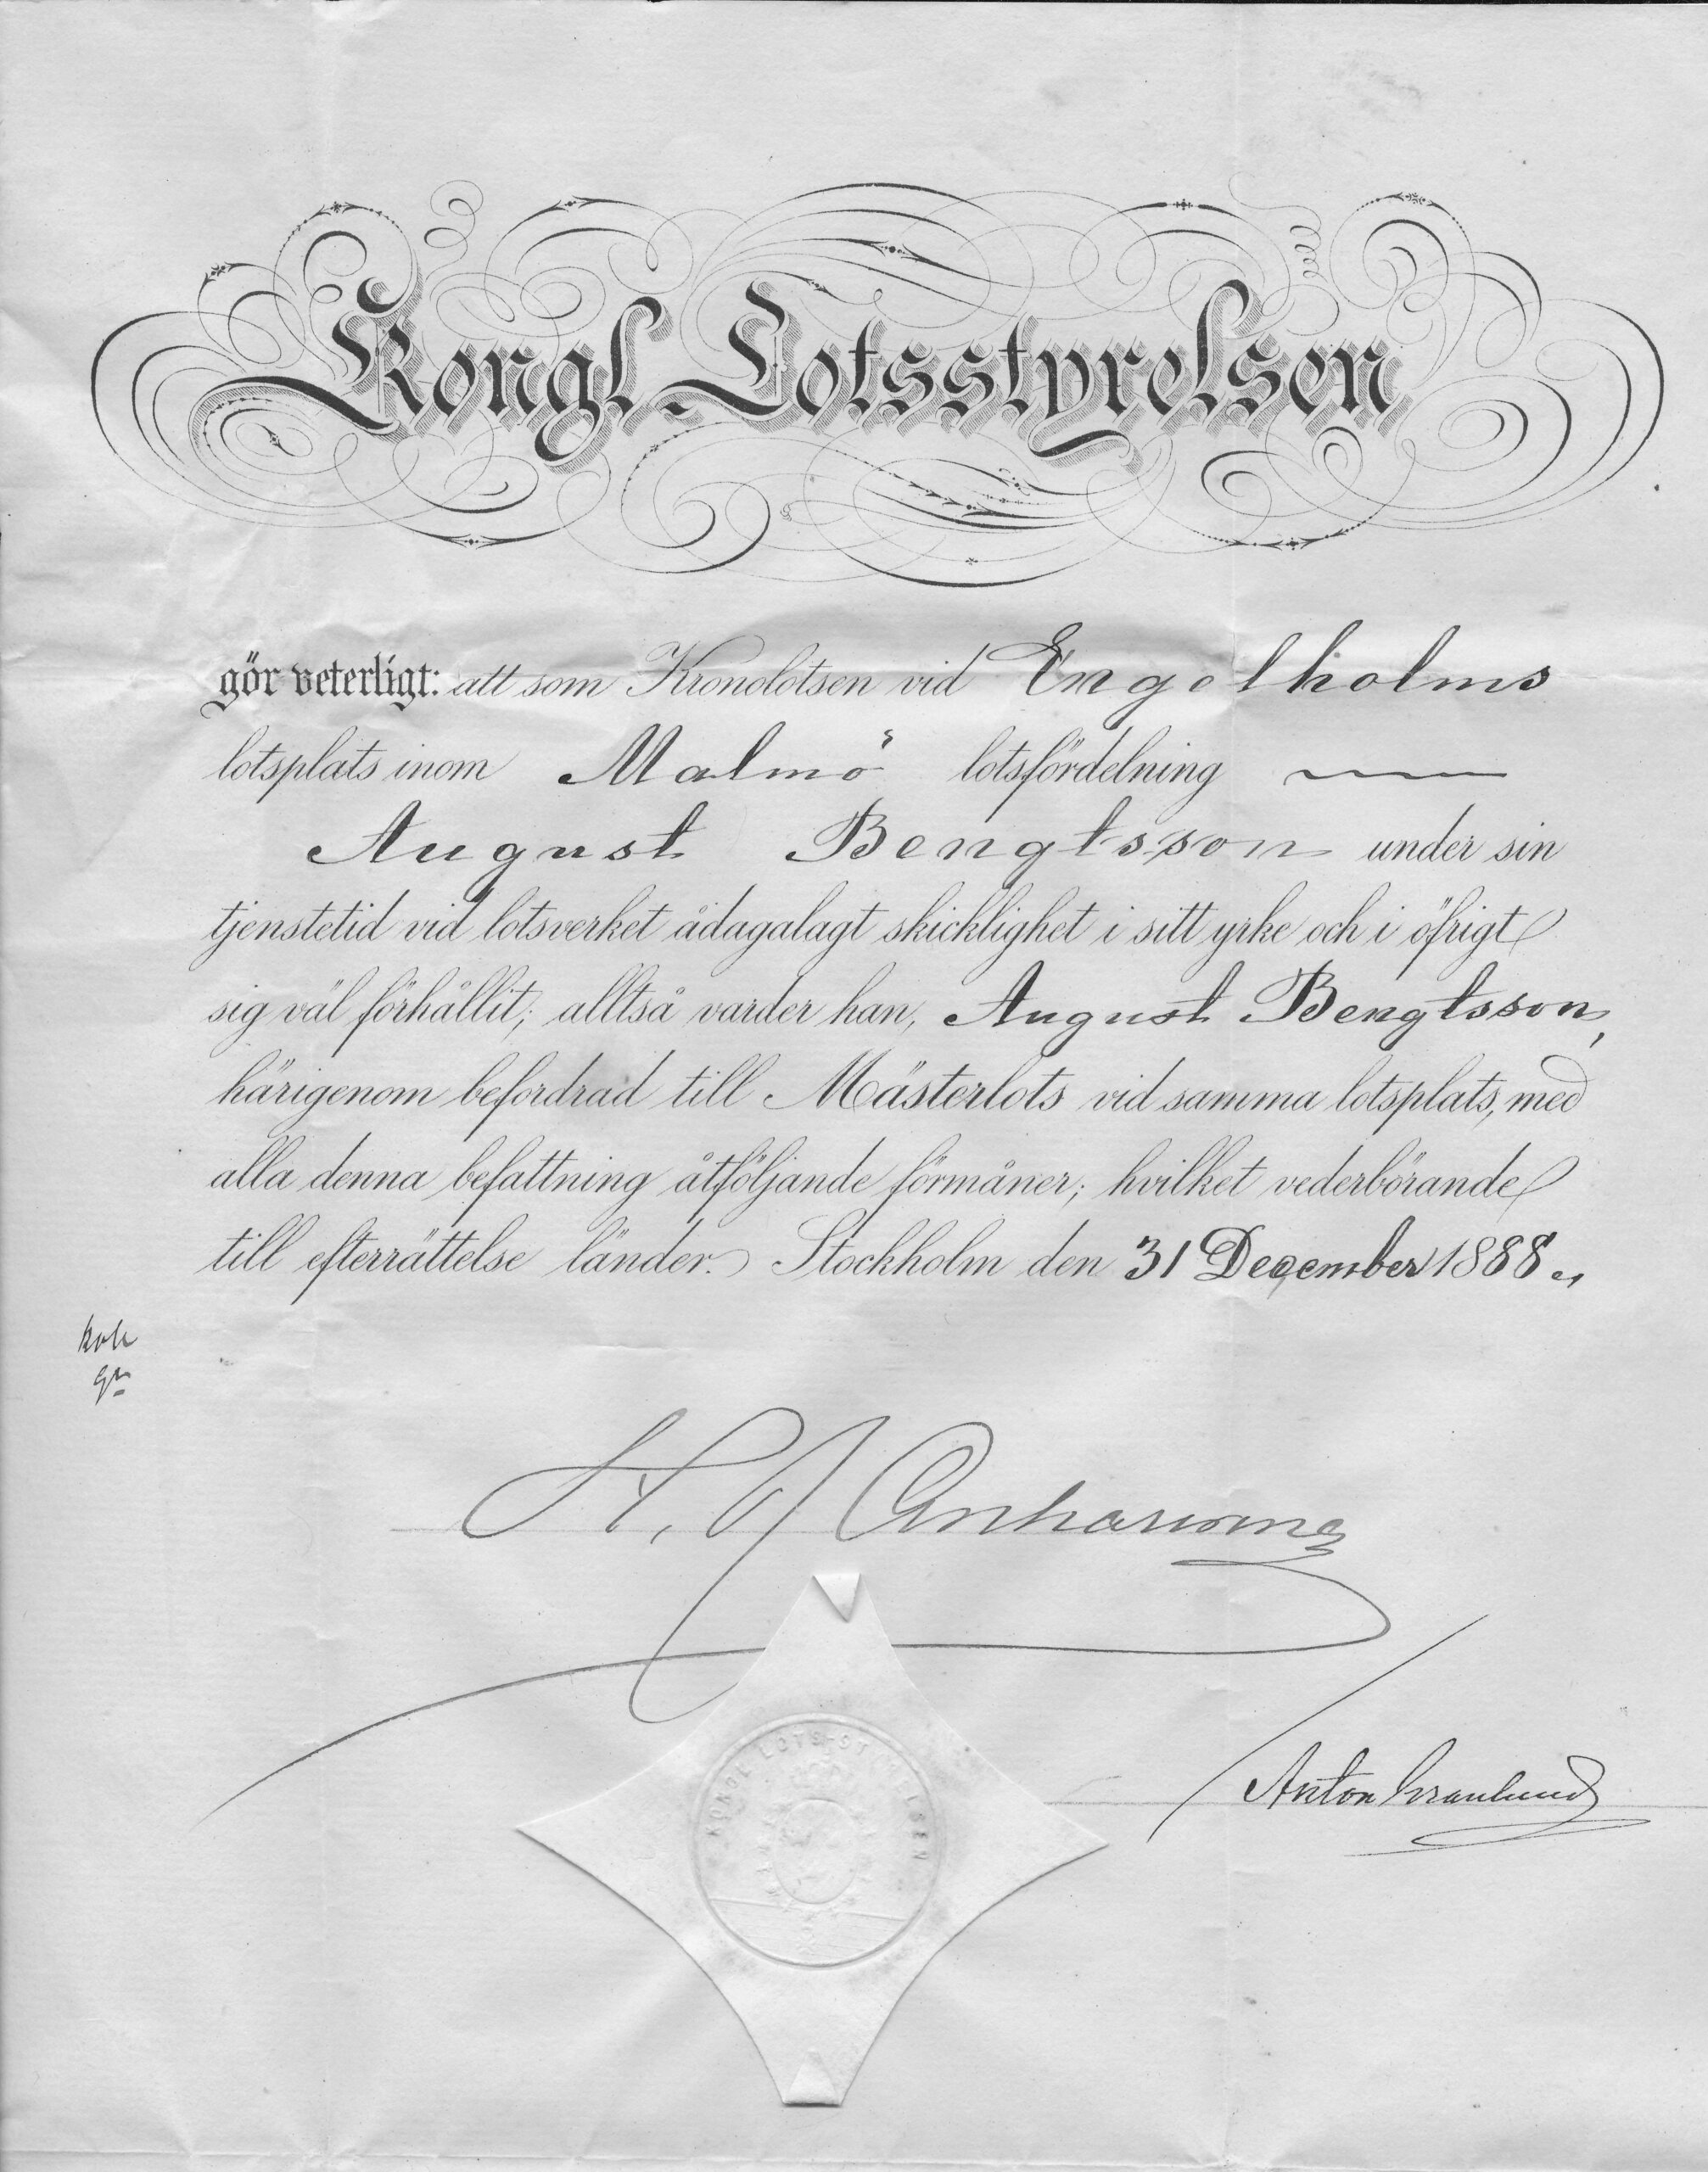 Kongl. Lotsstyrelsen
gör veterligt: att som Kronolotsen vid Engelholms
lotsplats inom Malmö lotsfördelning
August Bengtsson under sin
tjenstetid vid lotsverket ådagalagt skicklighet i sitt yrke och i öfrigt
sig väl förhållit; alltså varder han, August Bengtsson,
härigenom befordrad till Mästerlots vid samma lotsplats, med
alla denna befattning åtföljande förmåner; hvilket vederbörande
till efterrättelse länder. Stockholm den 31 December 1888.
KONGL LOTS-ST
Anton Granlund